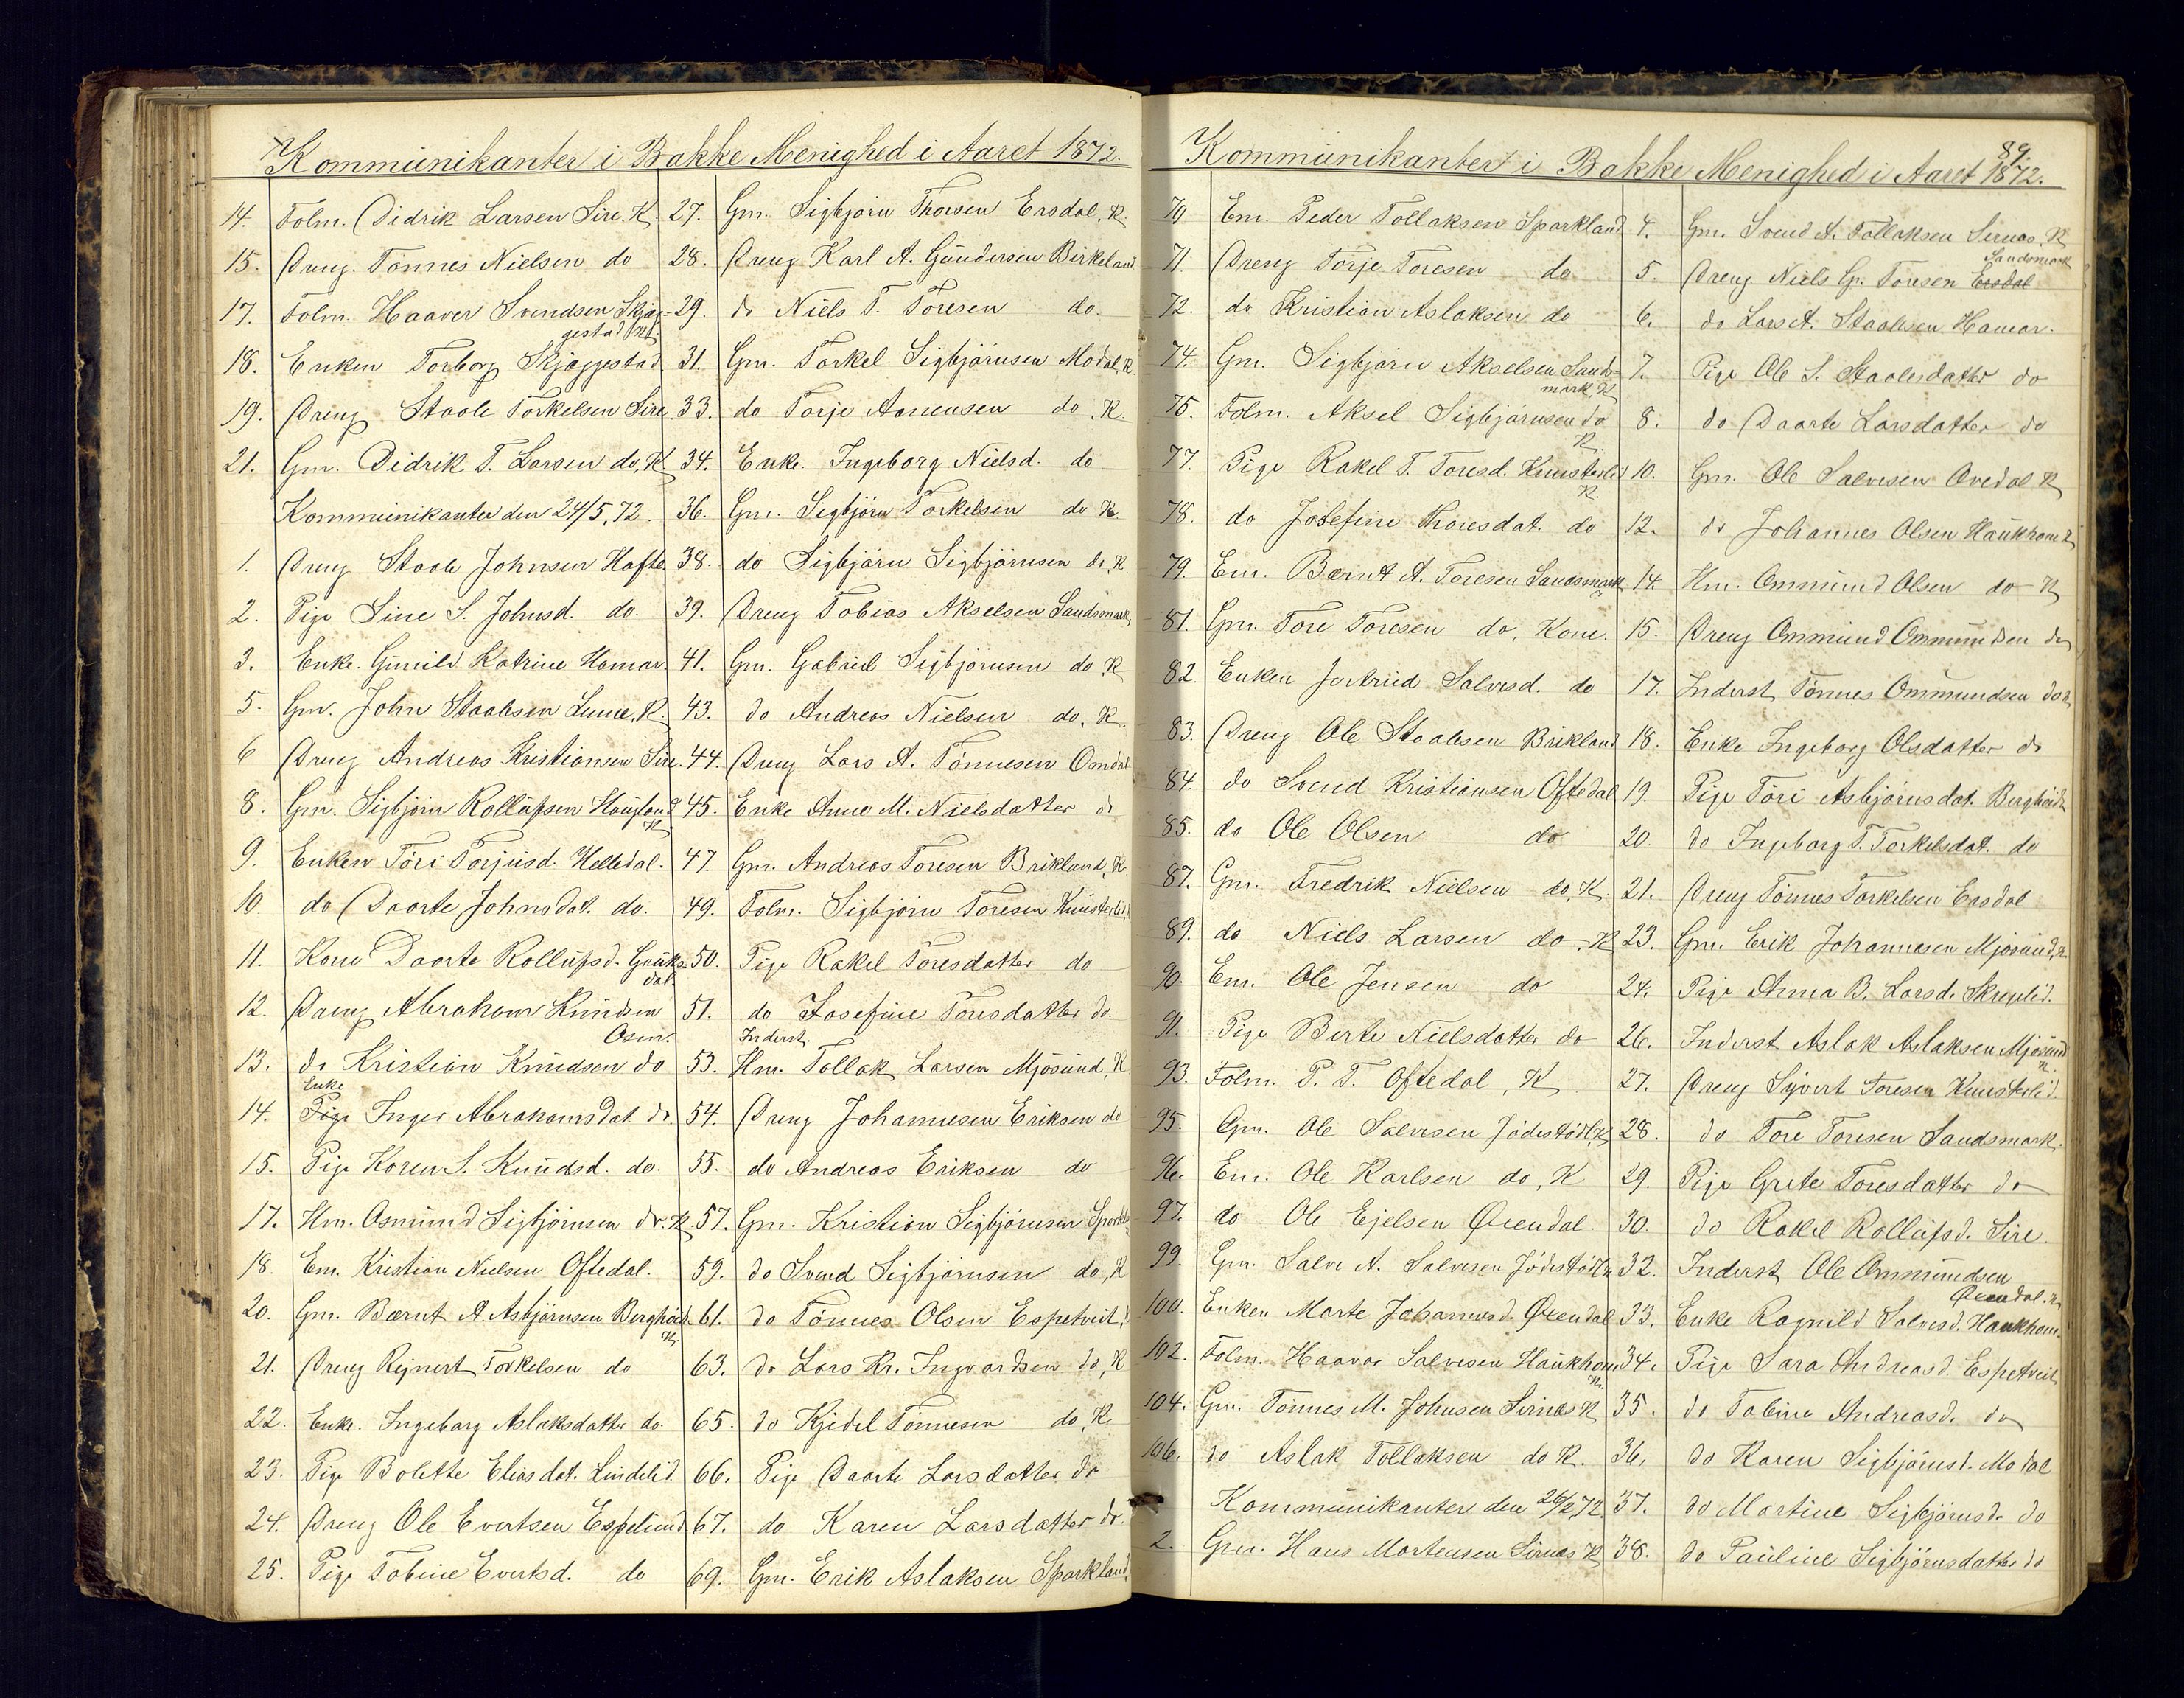 Kommunikanter i Bakke Menighed i Aaret 1872.
14. Folm. Didrik Larsen Sire. K.
15. Dreng. Tönnes Nielsen do
17. Folm. Haaver Svendsen Skjæg-
gestad
18. Enken Torborg Skjæggestad
19. Dreng Staale Torkelsen Sire.
21. Gm. Didrik T. Larsen do, K
Kommunikanter den 24/5, 72.
1. Dreng Staale Johnsen Hafte
2. Pige Sine S. Johnsd. do.
3. Enke. Gunild Katrine Hamar.
5. Gm. John Staalesen Lunne, K.
6 Dreng Andreas Kristiansen Sire.
8. Gm. Sigbjörn Rollufsen Haugland
K
9. Enken Töri Torjusd. Helledal.
10 do Daarte Johnsdat. do.
11. Kone Daarte Rollufsd. Gauks-
dal.
12. Dreng Abraham Knudsen
Osen.
13. do Kristian Knudsen do
Enke
14. Pige Inger Abrahamsdat. do
15. Pige Karen S. Knudsd. do.
17. Hm. Osmund Sigbjörnsen do. K.
18. Em. Kristian Nielsen Oftedal.
20. Gm. Bærnt A. Asbjörnsen Berghöid.
K
21. Dreng Rejnert Torkelsen do
22. Enke. Ingeborg Aslaksdatter do.
23. Pige Bolette Eliasdat. Lindelid.
24. Dreng Ole Evertsen Espelund
25. Pige Tobine Evertsd. do
27. Gm. Sigbjörn Thorsen Ersdal, K.
28. Dreng Karl A. Gundersen Birkeland
29. do Niels T. Toresen do.
31. Gm. Torkel Sigbjörnsen Modal, K.
33. do Torje Aanensen do, K.
34. Enke. Ingeborg Nielsd. do
36. Gm. Sigbjörn Torkelsen do K
38. do Sigbjörn Sigbjörnsen do, K
39. Dreng Tobias Akselsen Sandsmark
41. Gm. Gabriel Sigbjörnsen do, K
43. do Andreas Nielsen do, K.
44. Dreng Lars A. Tönnesen Omdal
45. Enke Anne M. Nielsdatter do
47. Gm. Andreas Toresen Brikland, K
49. Folm. Sigbjörn Toresen Kunsterlid,
50. Pige Rakel Toresdatter do
51. do Josefine Toresdatter do.
Inderst.
53. Hm. Tollak Larsen Mjösund, K
54. Dreng Johannesen Eriksen do
55. do Andreas Eriksen do
57. Gm. Kristian Sigbjörnsen Sparkld
59. do Svend Sigbjörnsen do, K
61. do Tönnes Olsen Espetveit,
63. do Lars Kr. Ingvardsen do, K
65. do Kjedel Tönnesen do, K.
66. Pige Daarte Larsdatter do
67. do Karen Larsdatter do.
69. Gm. Erik Aslaksen Sparkland.
89.
Kommunikanter i Bakke Menighed i Aaret 1872.
70 Em. Peder Tollaksen Sparkland
71. Dreng Torje Toresen do
72. do Kristian Aslaksen do
74. Gm. Sigbjörn Akselsen Sands-
mark, K
75. Folm. Aksel Sigbjörnsen do
K.
77. Pige Rakel T. Toresd. Kunsterlid
K.
78. do Josefine Thoresdat. do
79. Em. Bærnt A. Toresen Sandsmark
81. Gm. Tore Toresen do, Kone.
82. Enken Jertrud Salvesd. do
83. Dreng Ole Staalesen Brikland
84. do Svend Kristiansen Oftedal
85. do Ole Olsen do
87. Gm. Fredrik Nielsen do, K.
89. do Niels Larsen do, K
90. Em. Ole Jensen do
91. Pige Berte Nielsdatter do
93. Folm. P. T. Oftedal, K
95. Gm. Ole Salvesen Jödestödl, K
96. Em. Ole Karlsen do, K
97. do Ole Ejelsen Øxendal.
99. Gm. Salve A. Salvesen Jödestödl K
100. Enken Marte Johannesd. Øxendal
102. Folm. Haavar Salvesen Haukhom
K.
104. Gm. Tönnes M. Johnsen Sirnæs K
106. do Aslak Tollaksen do K.
Kommunikanter den 26/5 72.
2. Gm. Hans Mortensen Sirnæs K
4. Gm. Svend A. Tollaksen Sirnæs, K
Sandsmark
5. Dreng Niels G. Toresen Ersdal
6. do Lars A. Staalesen Hamar.
7. Pige Ole S. Staalesdatter do
8. do Daarte Larsdatter do
10. Gm. Ole Salvesen Ovedal K
12. do Johannes Olsen Haukhom K
14. Hm. Ommund Olsen do K
15. Dreng Ommund Ommundsen do
17. Inderst Tönnes Ommundsen do K
18. Enke Ingeborg Olsdatter do
19. Pige Töri Asbjörnsdat. Berghöid
20. do Ingeborg T. Torkelsdat. do
21. Dreng Tönnes Torkelsen Ersdal
23. Gm. Erik Johannesen Mjösund, K.
24. Pige Anna B. Larsd. Skreplid.
26. Inderst Aslak Aslaksen Mjösund
K.
27. Dreng Syvert Toresen Kunsterlid.
28. do Tore Toresen Sandsmark.
29. Pige Grete Toresdatter do
30. do Rakel Rollufsd. Sire.
32. Inderst Ole Ommundsen
Øxendal. K
33. Enke Ragnild Salvesd. Haukhom.
34. Pige Sara Andreasd. Espetveit
35. do Tobine Andreasd. do
36. do Karen Sigbjörnsd. Modal
37. do Martine Sigbjörnsd. do
38. do Pauline Sigbjörnsdatter do